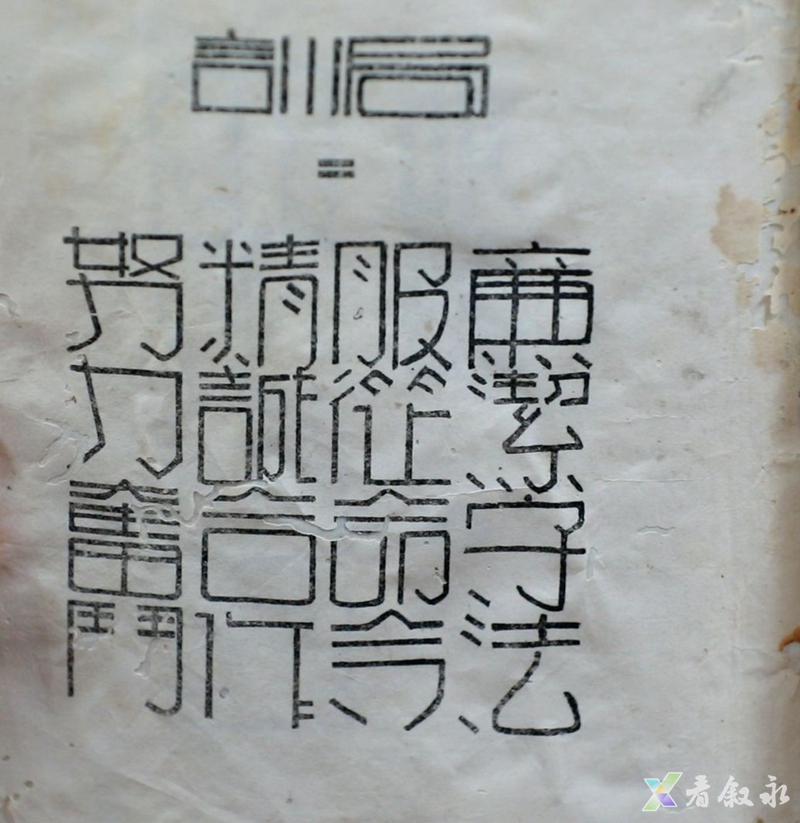 局訓
廉潔守法
服從命令
精誠合作
努力奮鬥
看叙永